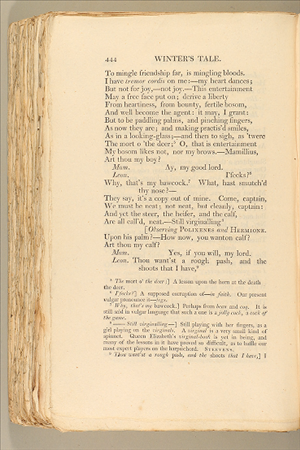 444 WINTER'S TALE.
To mingle friendship far, is mingling bloods.
I have tremor cordis on me:—my heart dances;
But not for joy,—not joy.—This entertainment
May a free face put on; derive a liberty
From heartiness, from bounty, fertile bosom,
And well become the agent: it may, I grant:
But to be paddling palms, and pinching fingers,
As now they are; and making practis'd smiles,
As in a looking-glass;—and then to sigh, as 'twere
The mort o'the deer; O, that is entertainment
My bosom likes not, nor my brows.—Mamillius,
Art thou my boy?
Mam. Ay, my good lord.
Leon. I'fecks?
Why, that's my bawcock. What, hast smutch'd
thy nose?—
They say, it's a copy out of mine. Come, captain,
We must be neat; not neat, but cleanly, captain:
And yet the steer, the heifer, and the calf,
Are all call'd, neat.—Still virginalling
[Observing POLIXENES and HERMIONE.
Upon his palm?—How now, you wanton calf?
Art thou my calf?
Mam. Yes, if you will, my lord.
Leon. Thou want'st a rough pash, and the
shoots that I have,
The mort o' the deer:] A lesson upon the horn at the death
the deer.
I'fecks?] A supposed corruption of—in faith. Our present
vulgar pronounce it—fegs.
Why, that's my bawcock.] Perhaps from beau and coq. It is
still said in vulgar language that such a one is a jolly cock, a cock of
the game.
Still virginalling—] Still playing with her fingers, as a
girl playing on the virginals. A virginal is a very small kind of
spinnet. Queen Elizabeth's virginal-book is yet in being, and
many of the lessons in it have proved so difficult, as to baffle our
most expert players on the harpsichord. STEEVENS.
Thou want'st a rough pash, and the shoots that I have,] I